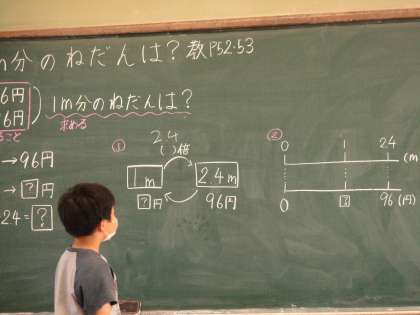 m分のねだんは？教P52.53
6円
6円
1m分のねだんは？
こと
求める
→96円
→?円
24=?
①
24
( )倍
1m
2.4m
?円
96円
②
0 1 24 (m
0 ? 96 (円)